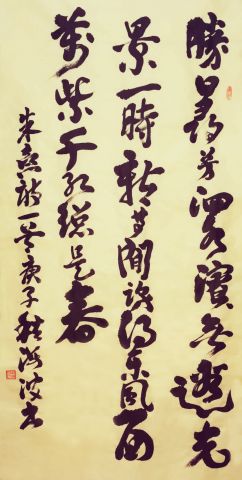 勝日尋芳泗水濱無邊光
景一時新等閒識得東風面
萬紫千紅總是春
朱熹詩一首庚子 游波书